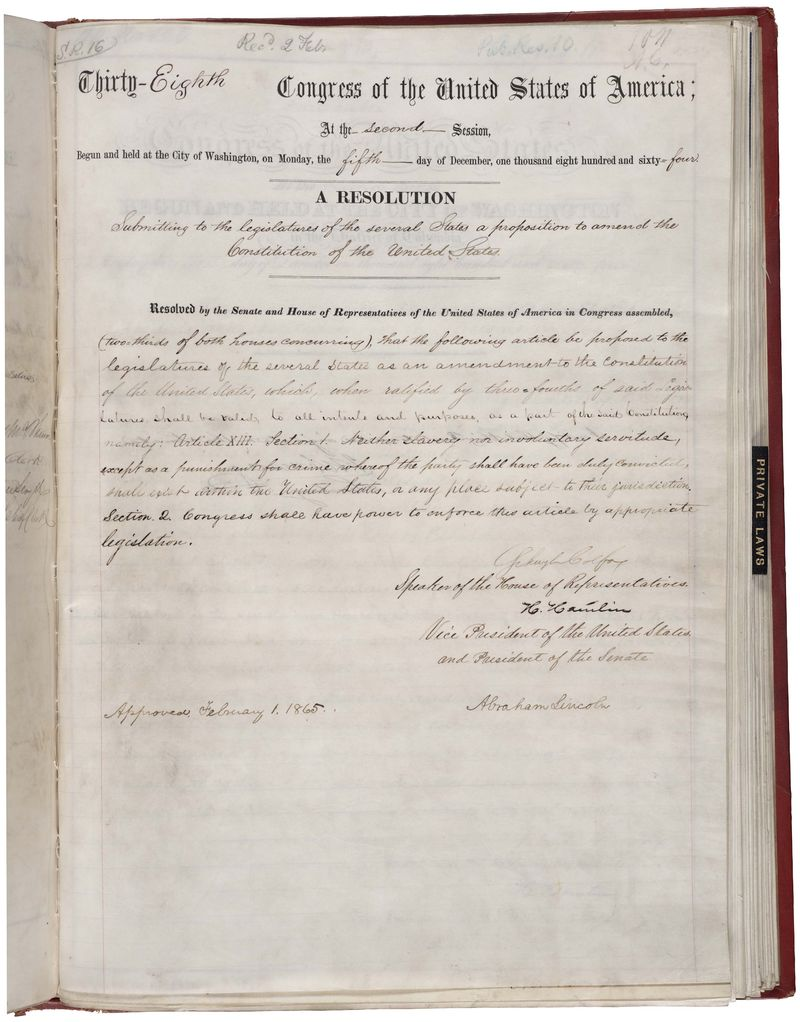 S.R. 16
Rec'd. 2 Feb.
Pub. Res. 10.
Thirty-Eighth Congress of the United States of America;
At the second Session,
Begun and held at the City of Washington, on Monday, the fifth day of December, one thousand eight hundred and sixty-four.
A RESOLUTION
Submitting to the legislatures of the several States a proposition to amend the
Constitution of the United States.
Resolved by the Senate and House of Representatives of the United States of America in Congress assembled,
(two-thirds of both houses concurring), That the following article be proposed to the
legislatures of the several States as an amendment to the Constitution
of the United States, which, when ratified by three-fourths of said Legis-
latures shall be valid, to all intents and purposes, as a part of the said Constitution,
namely: Article XIII. Section 1. Neither slavery nor involuntary servitude,
except as a punishment for crime whereof the party shall have been duly convicted,
shall exist within the United States, or any place subject to their jurisdiction.
Section 2. Congress shall have power to enforce this article by appropriate
legislation.
Schuyler Colfax
Speaker of the House of Representatives.
H. Hamlin
Vice President of the United States,
and President of the Senate
Approved, February 1. 1865.
Abraham Lincoln
PRIVATE LAWS